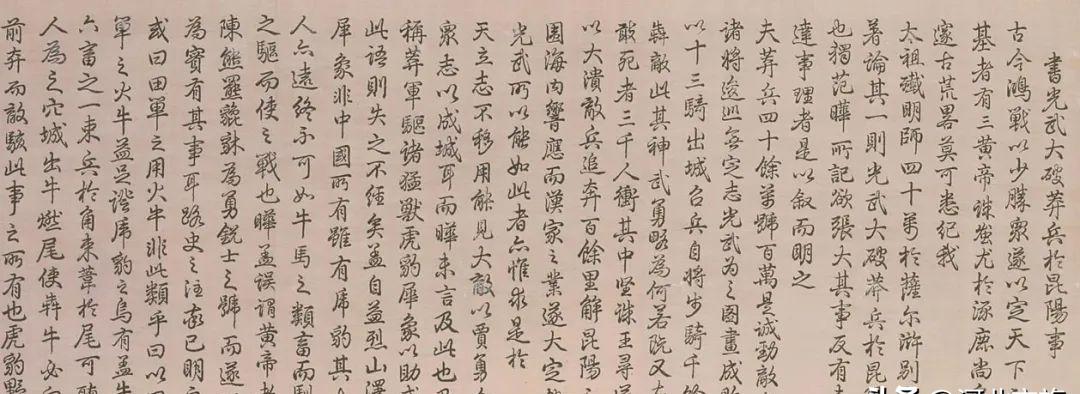 書光武大破莽兵於昆陽事
古今鴻戰以少勝衆遂以定天下
基者有三黄帝誅蚩尤於涿鹿尚
邃古荒畧莫可悉紀我
太祖殱明師四十萬於薩尔滸别
著論其一則光武大破莽兵於昆
也獨范曄所記欲張大其事反有
達事理者是以叙而明之
夫莽兵四十餘萬號百萬是誠勁敵
諸將逡巡無定志光武為之圖畫成
以十三騎出城召兵自將步騎千餘
犇敵此其神武勇略為何若既又
敢死者三千人衝其中堅誅王尋
以大潰敵兵追奔百餘里解昆陽
圍海内響應而漢家之業遂大定
光武所以能如此者亦惟敬是於
天立志不移用能見大敵以賈勇
衆志以成城耳而曄未言及此也
稱莽軍驅諸猛獸虎豹犀象以助
此語則失之不經矣葢自益烈山澤
犀象非中國所有雖有虎豹其
人亦遠終不可如牛馬之類畜而馴
之驅而使之戰也曄葢誤謂黄帝
陳熊羆貔貅為勇銳士之號而遂
為實有其事耳路史之注亦已明
或曰田單之用火牛非此類乎曰以
單之火牛益足證虎豹之烏有葢牛
六畜之一束兵於角束葦於尾可
人為之穴城出牛燃尾使犇牛必向
前奔而敵駭此事之所有也虎豹野